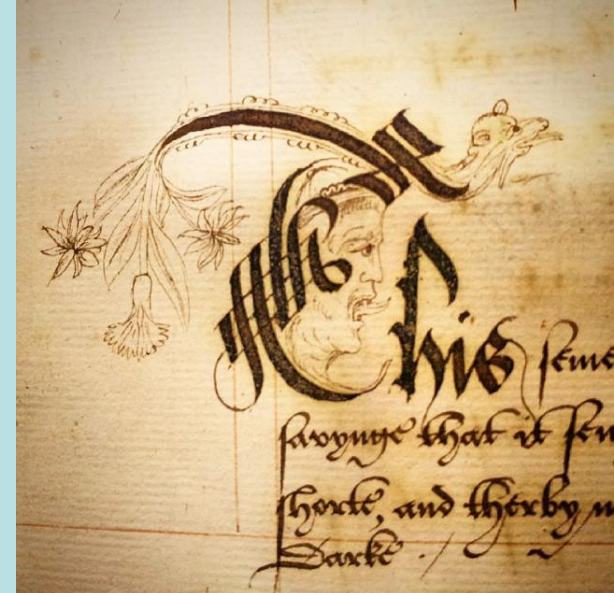 This seme
savynge that it sem
shorte, and therby
Darke ./